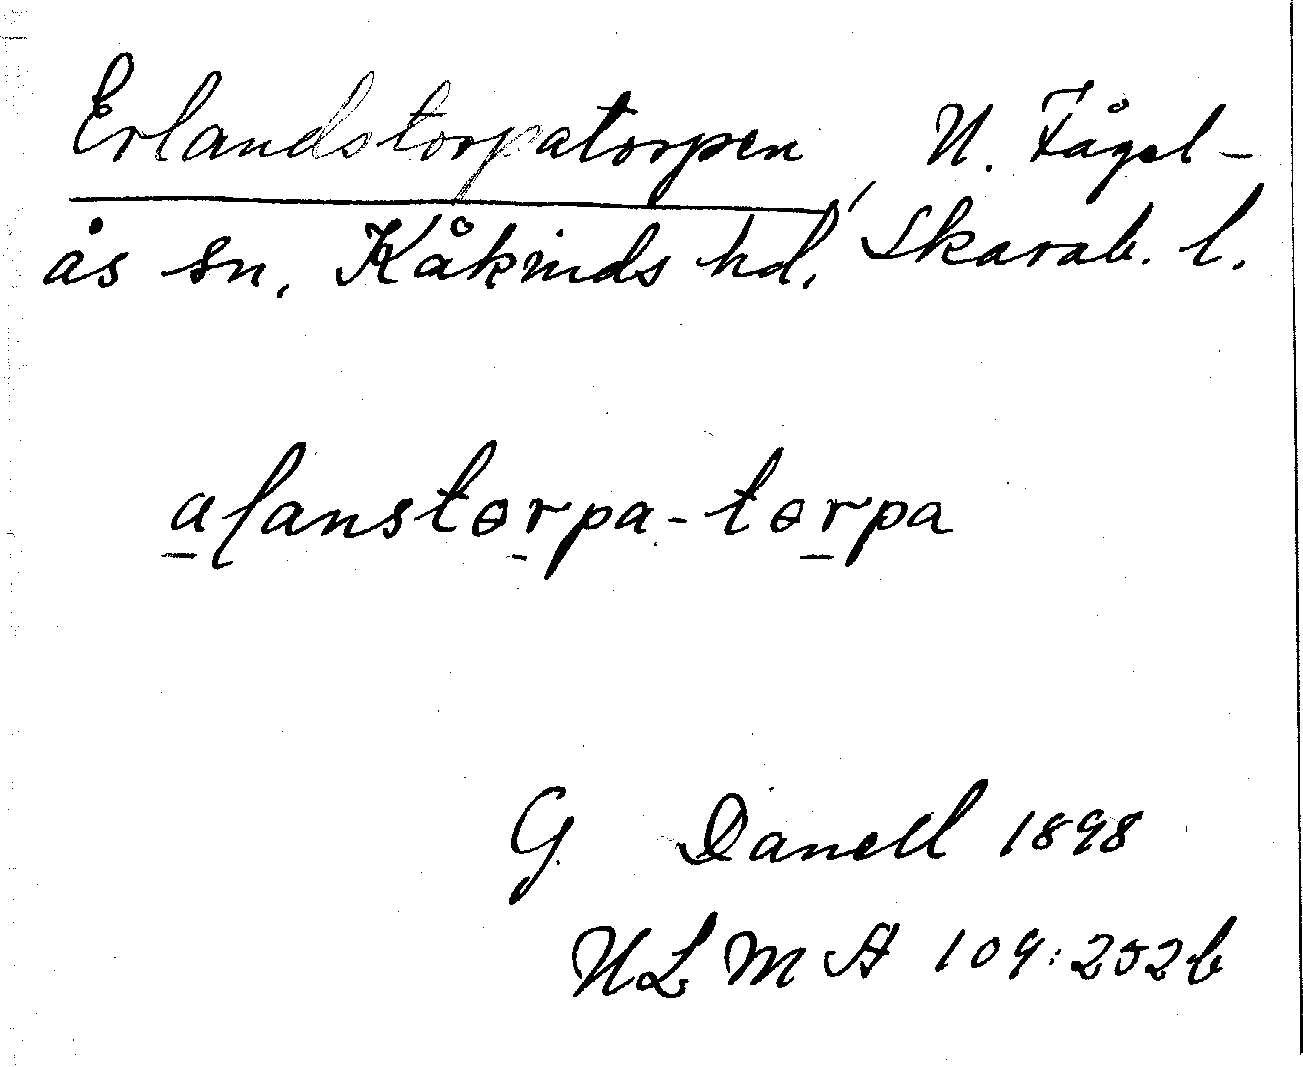 Erlandstorpatorpen, N. Fågel-
ås sn, Kåkinds hd, Skarab. l.
alanstorpa-torpa
G Danell 1898
ULMA 109:252b